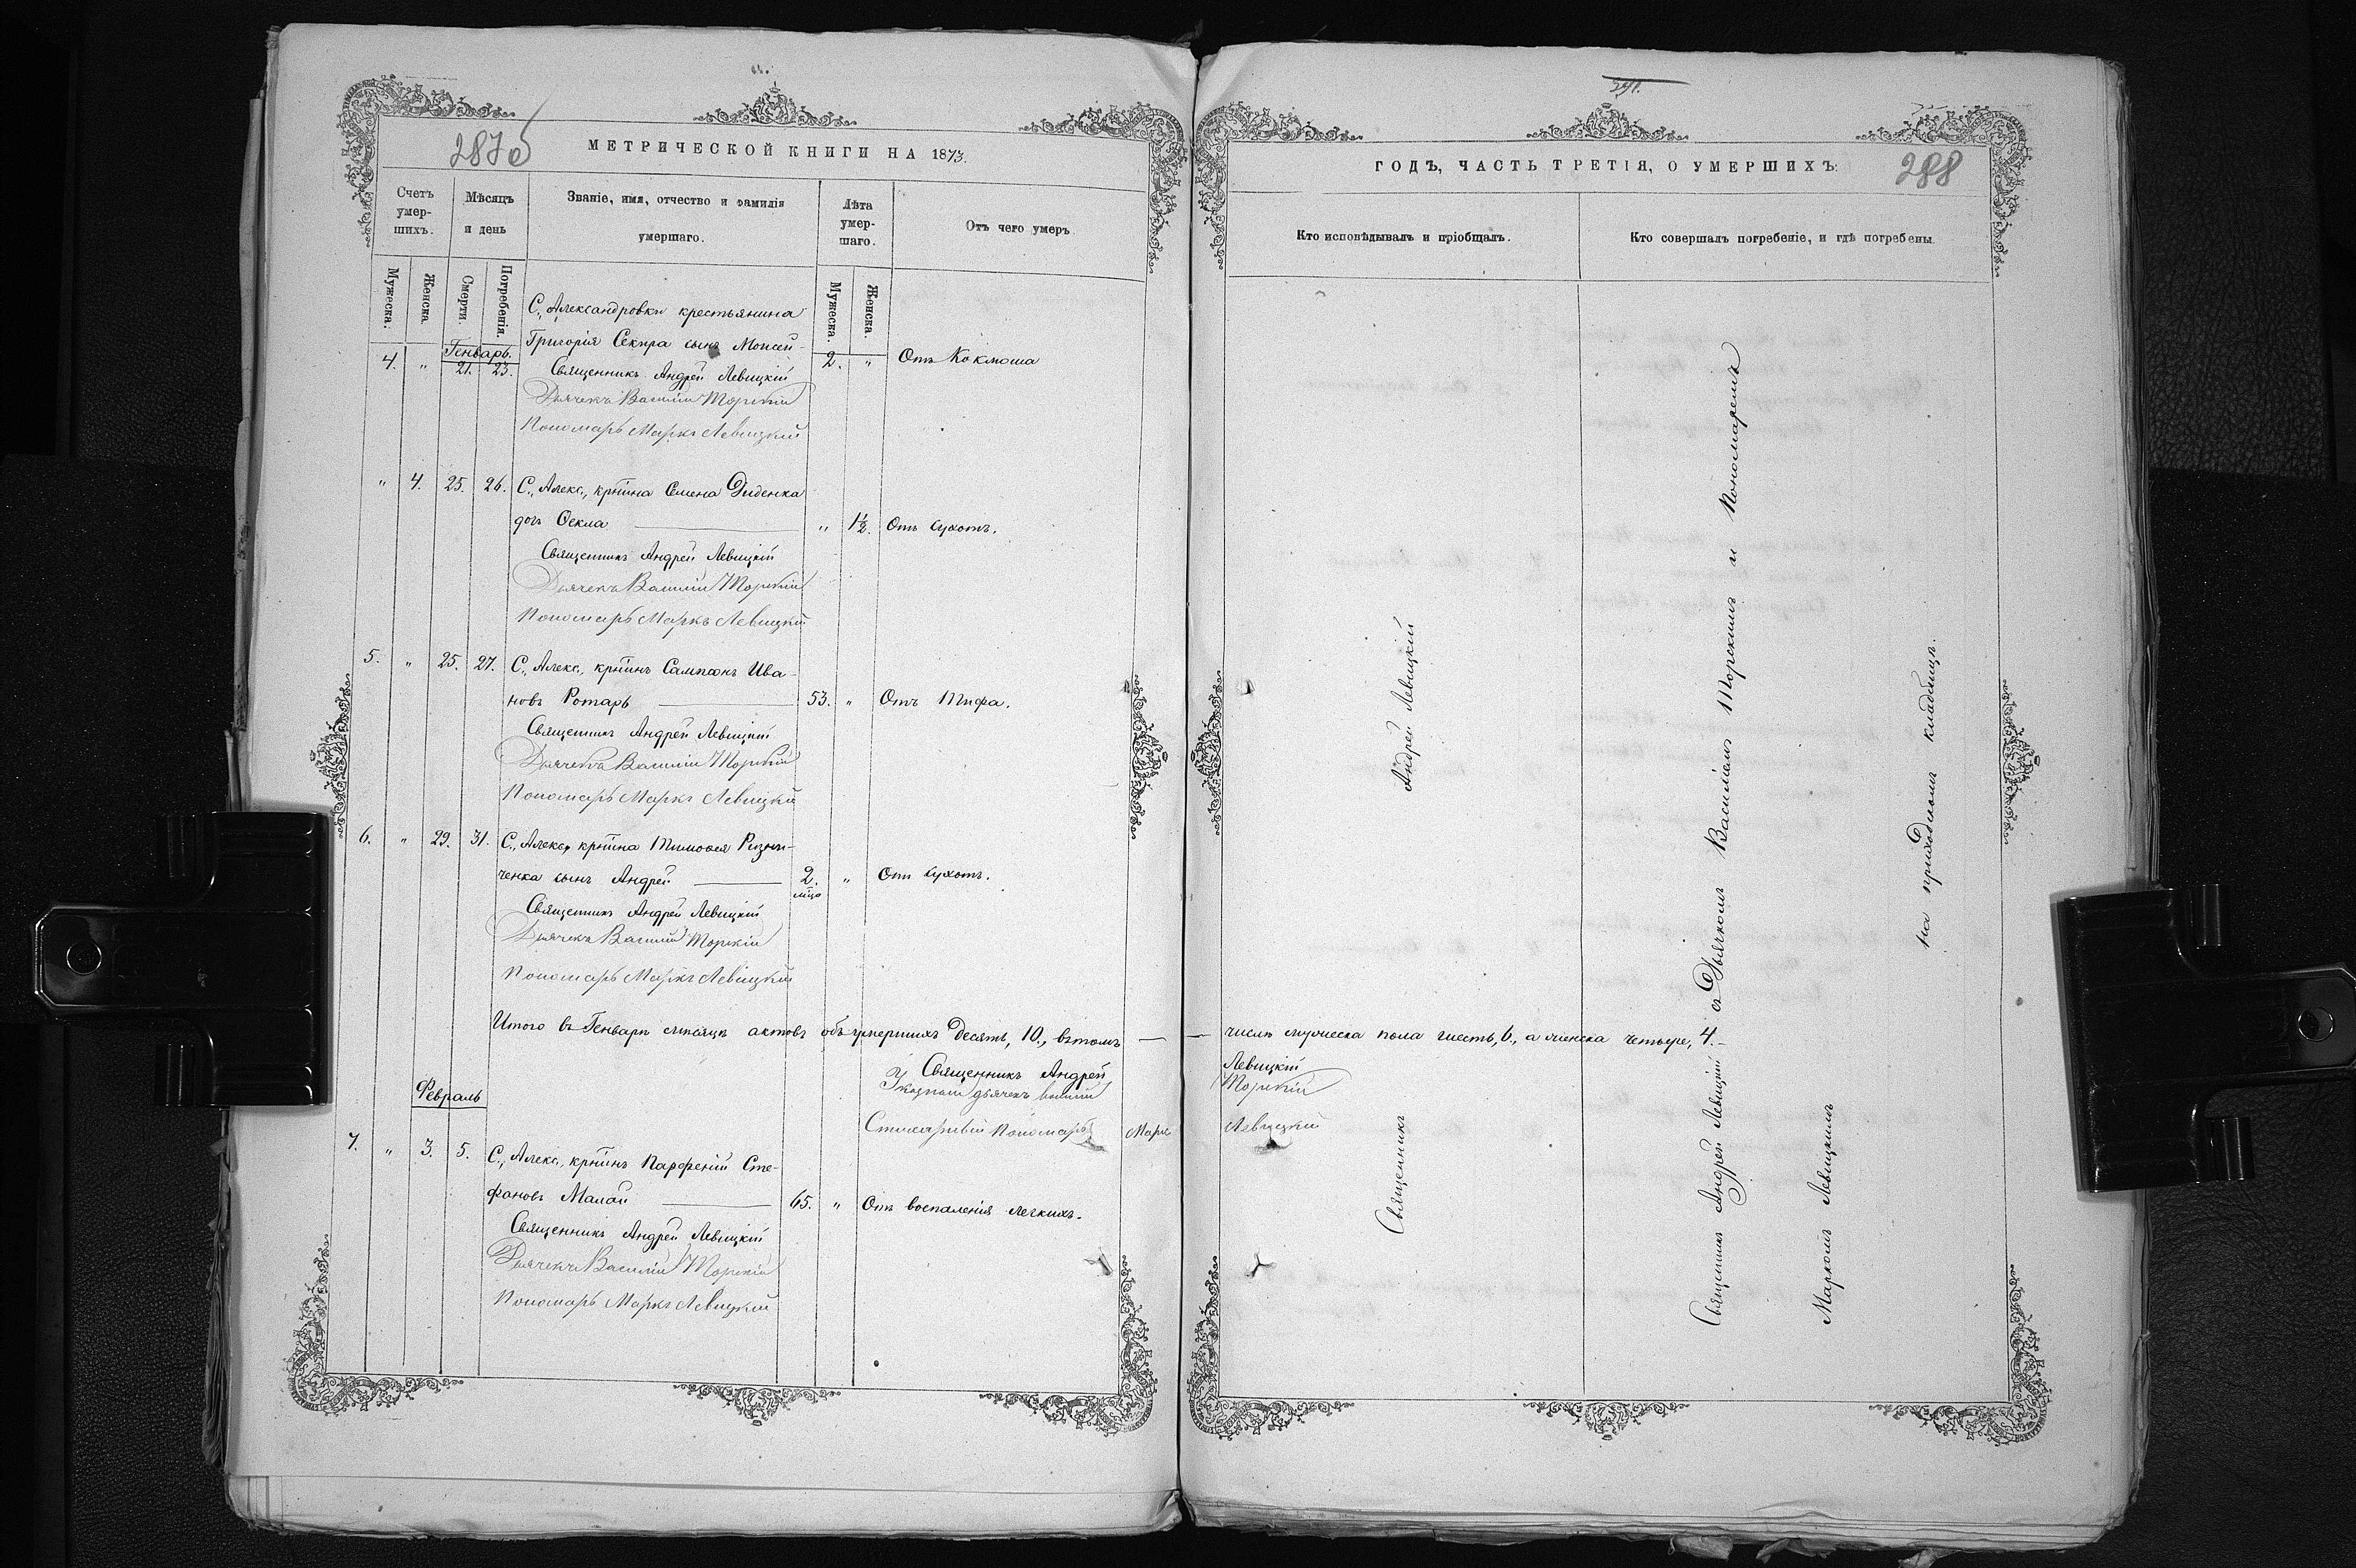 287об
МЕТРИЧЕСКОЙ КНИГИ НА 1873.
Счетъ умер-шихъ.
Мѣсяцъ и день
Званіе, имя, отчество и фамилія умершаго.
Лѣта умер-шаго.
Отъ чего умеръ.
Мужеска.
Женска.
Смерти.
Погребенія.
Мужеска.
Женска.
С., Александровки крестьянина
Григорія Секира сынъ Моисей -
Генварь.
4. " 21. 23. 2. " Отъ Коклюша
Священникъ Андрей Левицкій
Дьячекъ Василій Торскій
Пономарь Маркъ Левицкій
" 4. 25. 26. С., Алекс., крт̃ина Семена Диденка
дочь Ѳекла " 1½. Отъ сухотъ.
Священникъ Андрей Левицкій
Дьячекъ Василій Торскій
Пономарь Маркъ Левицкій
5. " 25. 27. С., Алекс., крт̃инъ Сампсонъ Ива-
новъ Ротарь 53. " Отъ Тифа.
Священникъ Андрей Левицкій
Дьячекъ Василій Торскій
Пономарь Маркъ Левицкій
6. " 29. 31. С., Алекс., крт̃ина Тимоѳея Ризни-
ченка сынъ Андрей 2. " Отъ сухотъ.
Священникъ Андрей Левицкій
Дьячекъ Василій Торскій
Пономарь Маркъ Левицкій
Итого въ Генварѣ мѣсяцѣ актовъ объ умершихъ десять, 10., въ томъ —
Священникъ Андрей
Указный дьячекъ Василій
Стихарный Пономарь Маркъ
Февраль
7. " 3. 5. С., Алекс., крт̃инъ Парѳеній Сте-
фановъ Малай 65. " Отъ воспаленія легкихъ.
Священникъ Андрей Левицкій
Дьячекъ Василій Торскій
Пономарь Маркъ Левицкій
288
ГОДЪ, ЧАСТЬ ТРЕТІЯ, О УМЕРШИХЪ.
Кто исповѣдывалъ и пріобщалъ.
Кто совершалъ погребеніе, и гдѣ погребены.
— числѣ мужеска пола шесть, 6., а женска четыре, 4. -
Левицкій
Торскій
Левицкій
Священникъ Андрей Левицкій
Священникъ Андрей Левицкій съ Дьячкомъ Василіемъ Торскимъ и Пономаремъ
Маркомъ Левицкимъ
на приходскомъ кладбищѣ.